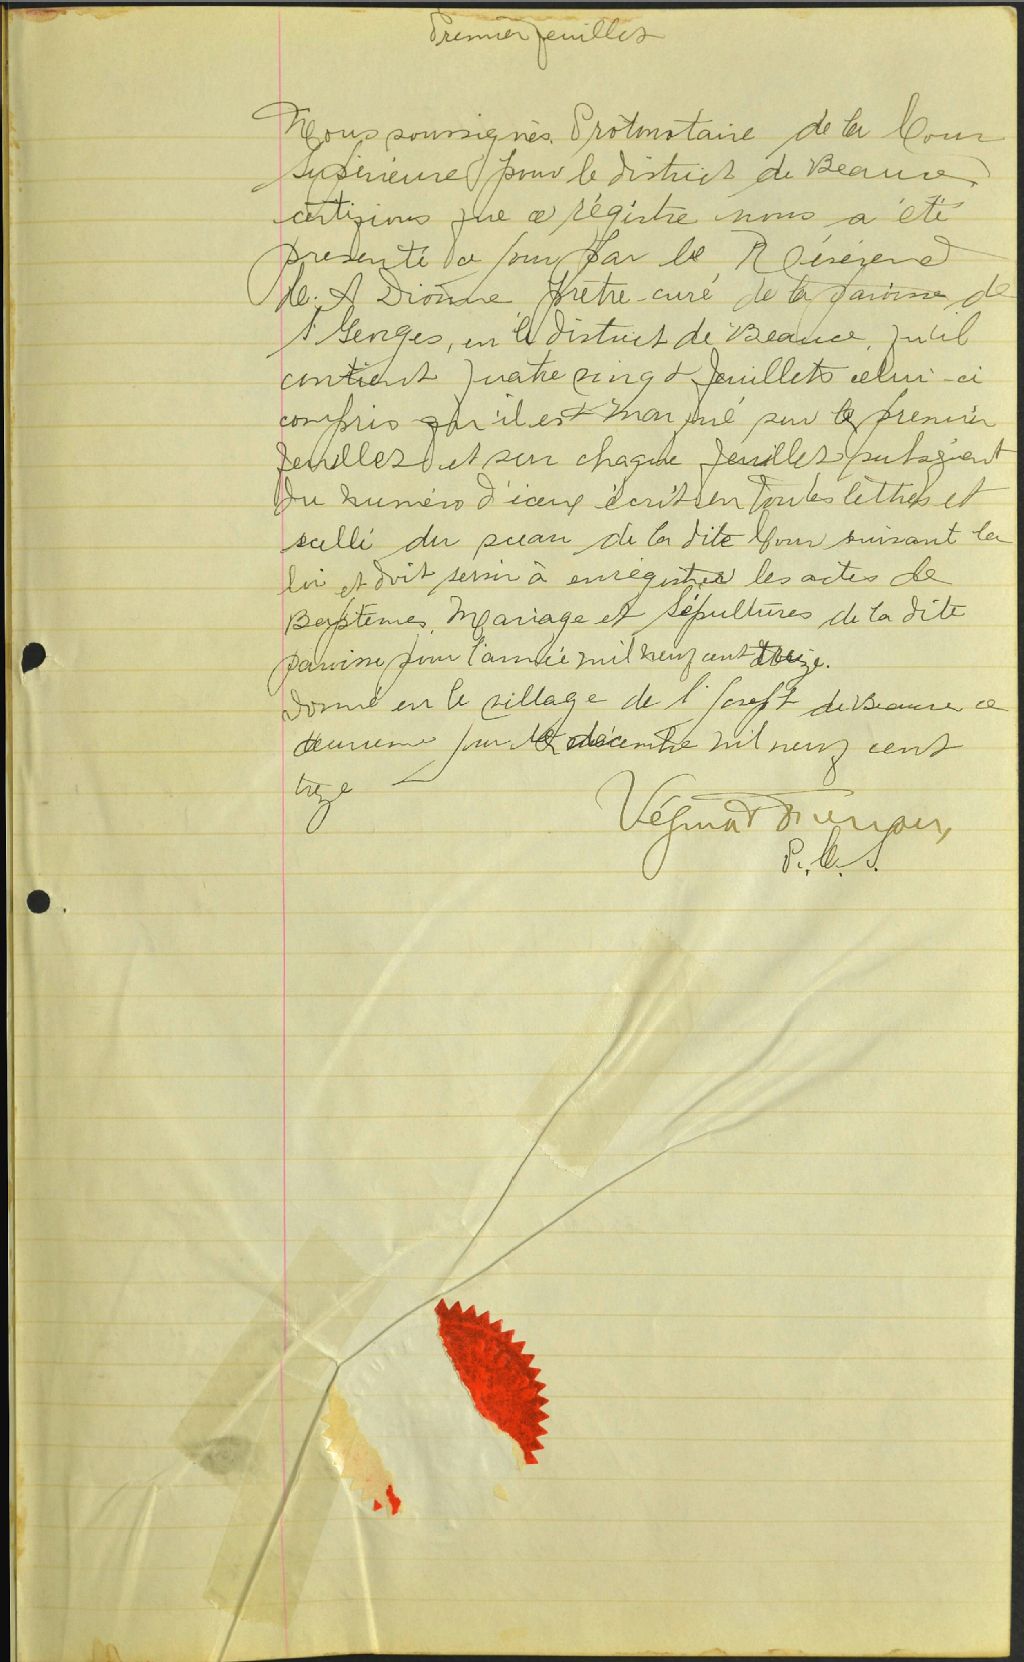 Premier feuillet
Nous soussignés Protonotaire de la Cour
Supérieure pour le district de Beauce
certifions que ce régistre nous a été
présenté ce jour par le Révérend
A Dionne prêtre-curé de la paroisse de
St Georges, en le district de Beauce, qu'il
contient quatre vingt feuillets celui-ci
compris qu'il est marqué sur le premier
feuillet et sur chaque feuillet subséquent
du numéro d'iceux écrit en toutes lettres et
scellé du sceau de la dite Cour suivant la
loi et doit servir à enrégistrer les actes de
Baptêmes, Mariage et Sépultures de la dite
paroisse pour l'année mil neuf cent
Donné en le village de St Joseph de Beauce ce
jour de décembre mil neuf cent
treize
P. C. S.